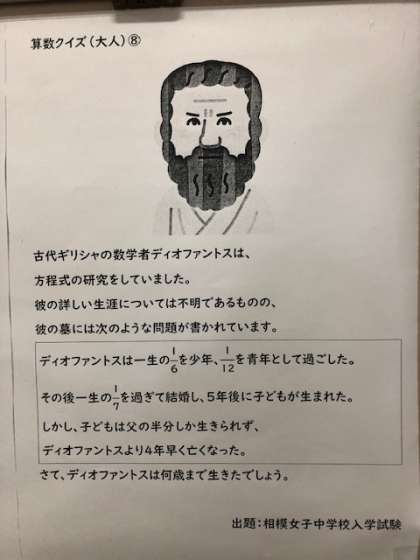 算数クイズ(大人)⑧
古代ギリシャの数学者ディオファントスは、
方程式の研究をしていました。
彼の詳しい生涯については不明であるものの、
彼の墓には次のような問題が書かれています。
ディオファントスは一生の1/6を少年、1/12を青年として過ごした。
その後一生の1/7を過ぎて結婚し、5年後に子どもが生まれた。
しかし、子どもは父の半分しか生きられず、
ディオファントスより4年早く亡くなった。
さて、ディオファントスは何歳まで生きたでしょう。
出題:相模女子中学校入学試験